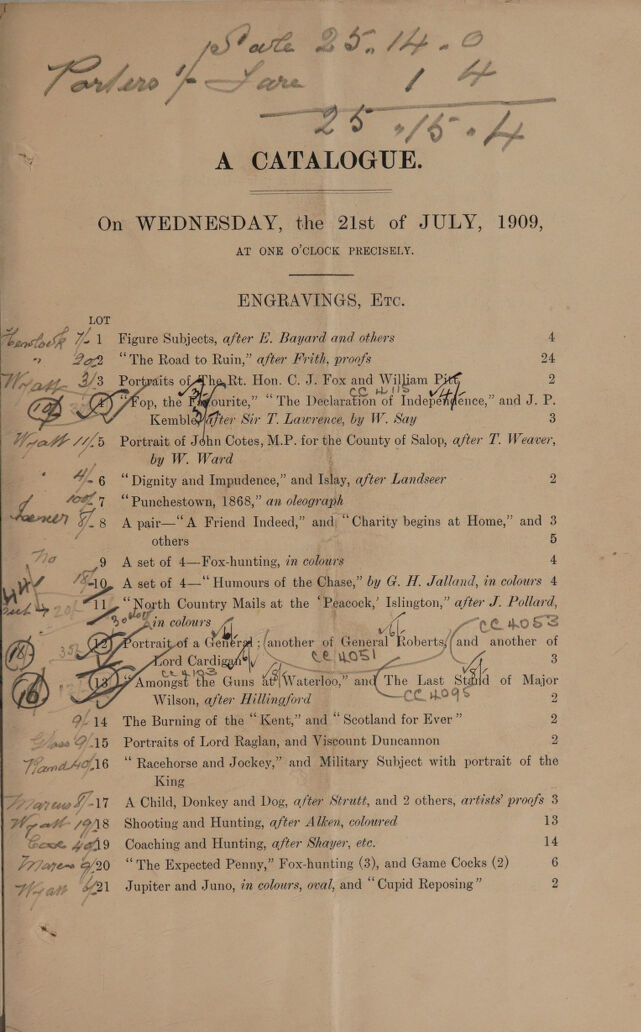 Sale 25.14.0
Porters 1/- Fare 1 4
25.15.4
A CATALOGUE.
On WEDNESDAY, the 21st of JULY, 1909,
AT ONE O'CLOCK PRECISELY.
ENGRAVINGS, Etc.
LOT
7/- 1 Figure Subjects, after E. Bayard and others 4
" 20/- 2 "The Road to Ruin," after Frith, proofs 24
Wyatt 3/- 3 Portraits of The Rt. Hon. C. J. Fox and William Pitt 2
CC 4115
"Fop, the Favourite," "The Declaration of Independence," and J. P.
Kemble, after Sir T. Lawrence, by W. Say 3
Wyatt 11/- 5 Portrait of John Cotes, M.P. for the County of Salop, after T. Weaver,
by W. Ward
" 4/- 6 "Dignity and Impudence," and Islay, after Landseer 2
7 "Punchestown, 1868," an oleograph
8/- 8 A pair—"A Friend Indeed," and "Charity begins at Home," and 3
others 5
no 9 A set of 4—Fox-hunting, in colours 4
18/- 10 A set of 4—"Humours of the Chase," by G. H. Jalland, in colours 4
20/- 11 "North Country Mails at the 'Peacock,' Islington," after J. Pollard,
in colours
CC 4053
18 35/- 12 Portrait of a General; another of General Roberts, and another of
Lord Cardigan 3
CC 4051
CC 4193
16 13 "Amongst the Guns at Waterloo," and The Last Stand of Major
CC 4095
Wilson, after Hillingford 2
9/- 14 The Burning of the "Kent," and "Scotland for Ever" 2
Glass 9/- 15 Portraits of Lord Raglan, and Viscount Duncannon 2
40/- 16 "Racehorse and Jockey," and Military Subject with portrait of the
King
Marcus 8/- 17 A Child, Donkey and Dog, after Strutt, and 2 others, artists' proofs 3
Wyatt 19/- 18 Shooting and Hunting, after Alken, coloured 13
40/- 19 Coaching and Hunting, after Shayer, etc. 14
Marcus 9/- 20 "The Expected Penny," Fox-hunting (3), and Game Cocks (2) 6
Wyatt 6/- 21 Jupiter and Juno, in colours, oval, and "Cupid Reposing" 2